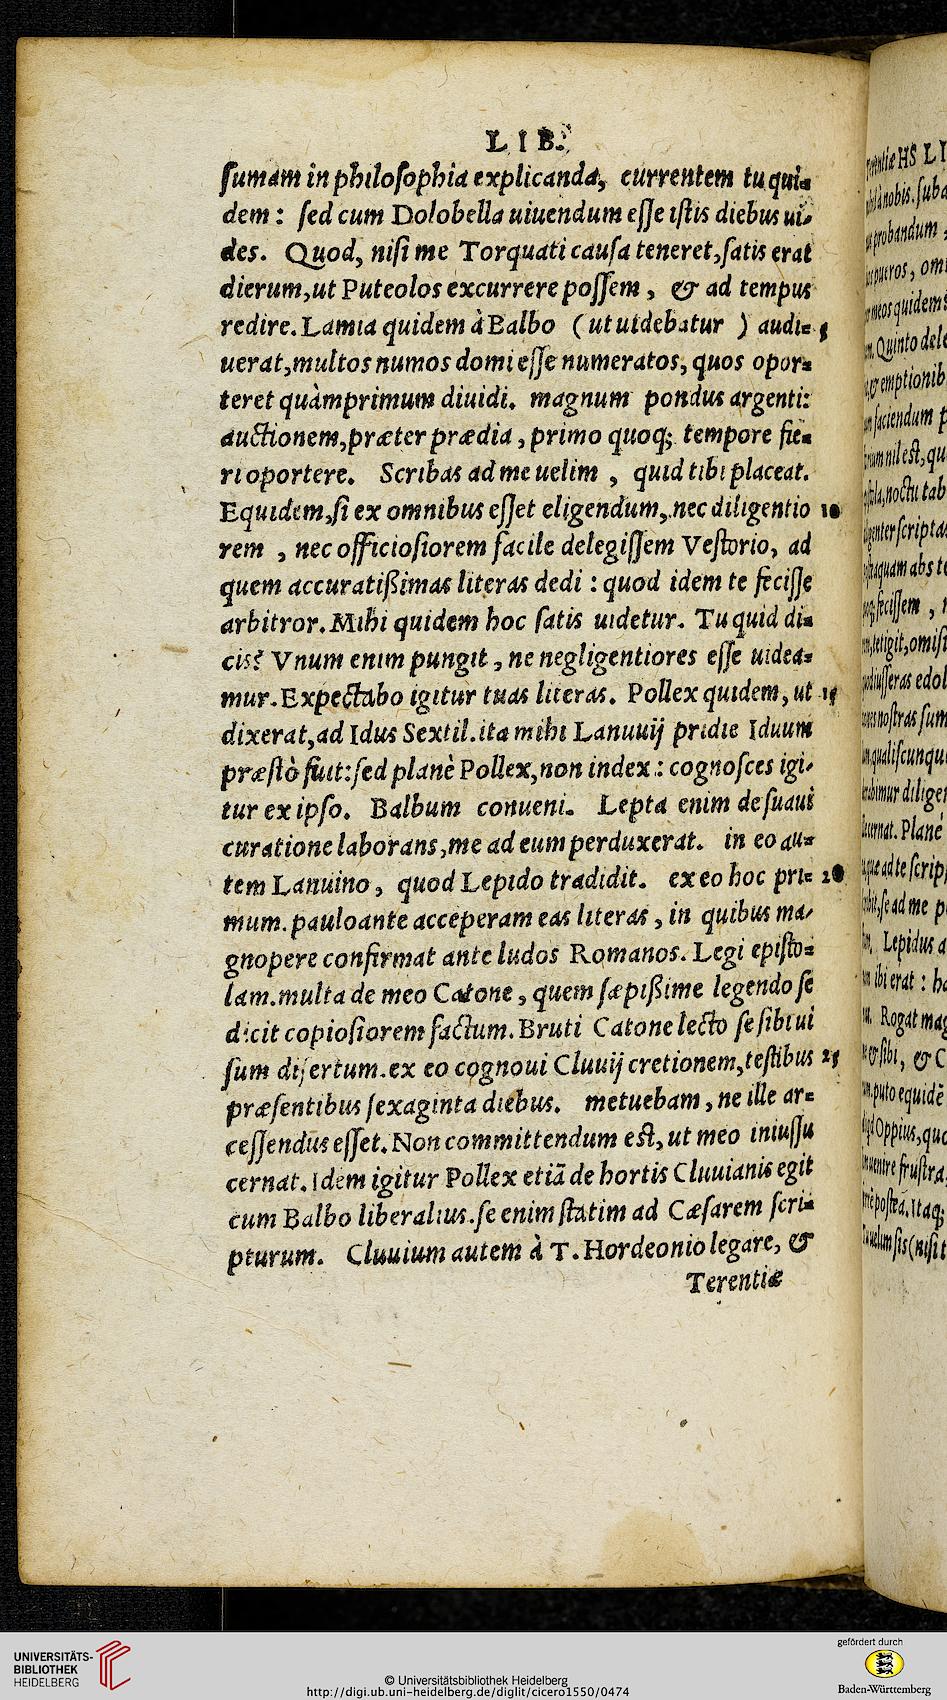 LIB.
sumam in philosophia explicanda, currentem tu qui=
dem: sed cum Dolobella uiuendum esse istis diebus ui=
des. Quod, nisi me Torquati causa teneret, satis erat
dierum, ut Puteolos excurrere possem, & ad tempus
redire. Lamia quidem à Balbo (ut uidebatur) audi= 5
uerat, multos numos domi esse numeratos, quos opor=
teret quàmprimum diuidi. magnum pondus argenti:
auctionem, præter prædia, primo quoq; tempore fie=
ri oportere. Scribas ad me uelim, quid tibi placeat.
Equidem, si ex omnibus esset eligendum, nec diligentio 10
rem, nec officiosiorem facile delegissem Vestorio, ad
quem accuratißimas literas dedi: quod idem te fecisse
arbitror. Mihi quidem hoc satis uidetur. Tu quid di=
cis? Vnum enim pungit, ne negligentiores esse uidea=
mur. Expectabo igitur tuas literas. Pollex quidem, ut 15
dixerat, ad Idus Sextil. ita mihi Lanuuij pridie Iduum
præstò fuit: sed planè Pollex, non index: cognosces igi=
tur ex ipso. Balbum conueni. Lepta enim de suaui
curatione laborans, me ad eum perduxerat. in eo au=
tem Lanuino, quod Lepido tradidit. ex eo hoc pri= 20
mum. pauloante acceperam eas literas, in quibus ma=
gnopere confirmat ante ludos Romanos. Legi episto=
lam. multa de meo Catone, quem sæpißime legendo se
dicit copiosiorem factum. Bruti Catone lecto se sibi ui
sum disertum. ex eo cognoui Cluuij cretionem, testibus 25
præsentibus sexaginta diebus. metuebam, ne ille ar=
cessendus esset. Non committendum est, ut meo iniussu
cernat. Idem igitur Pollex etiã de hortis Cluuianis egit
cum Balbo liberalius. se enim statim ad Cæsarem scri=
pturum. Cluuium autem à T. Hordeonio legare, &
Terentiæ
HS LI
nobis. sub
probandum,
pueros, om
meos quidem
Quinto dele
& emptionib
faciendum p
nil est, qu
noctu tab
scriptas
abs te
fecissem, n
tetigit, omis
edol
nostras sum
qualiscunqu
diliger
Planè
ad te scrip
se ad me p
Lepidus a
ibi erat: ha
Rogat mag
& sibi, & C
puto equidẽ
Oppius, quo
frustra,
posteà. Itaq;
uelim sis (nisi t
UNIVERSITÄTS-
BIBLIOTHEK
HEIDELBERG
© Universitätsbibliothek Heidelberg
http://digi.ub.uni-heidelberg.de/diglit/cicero1550/0474
gefördert durch
Baden-Württemberg